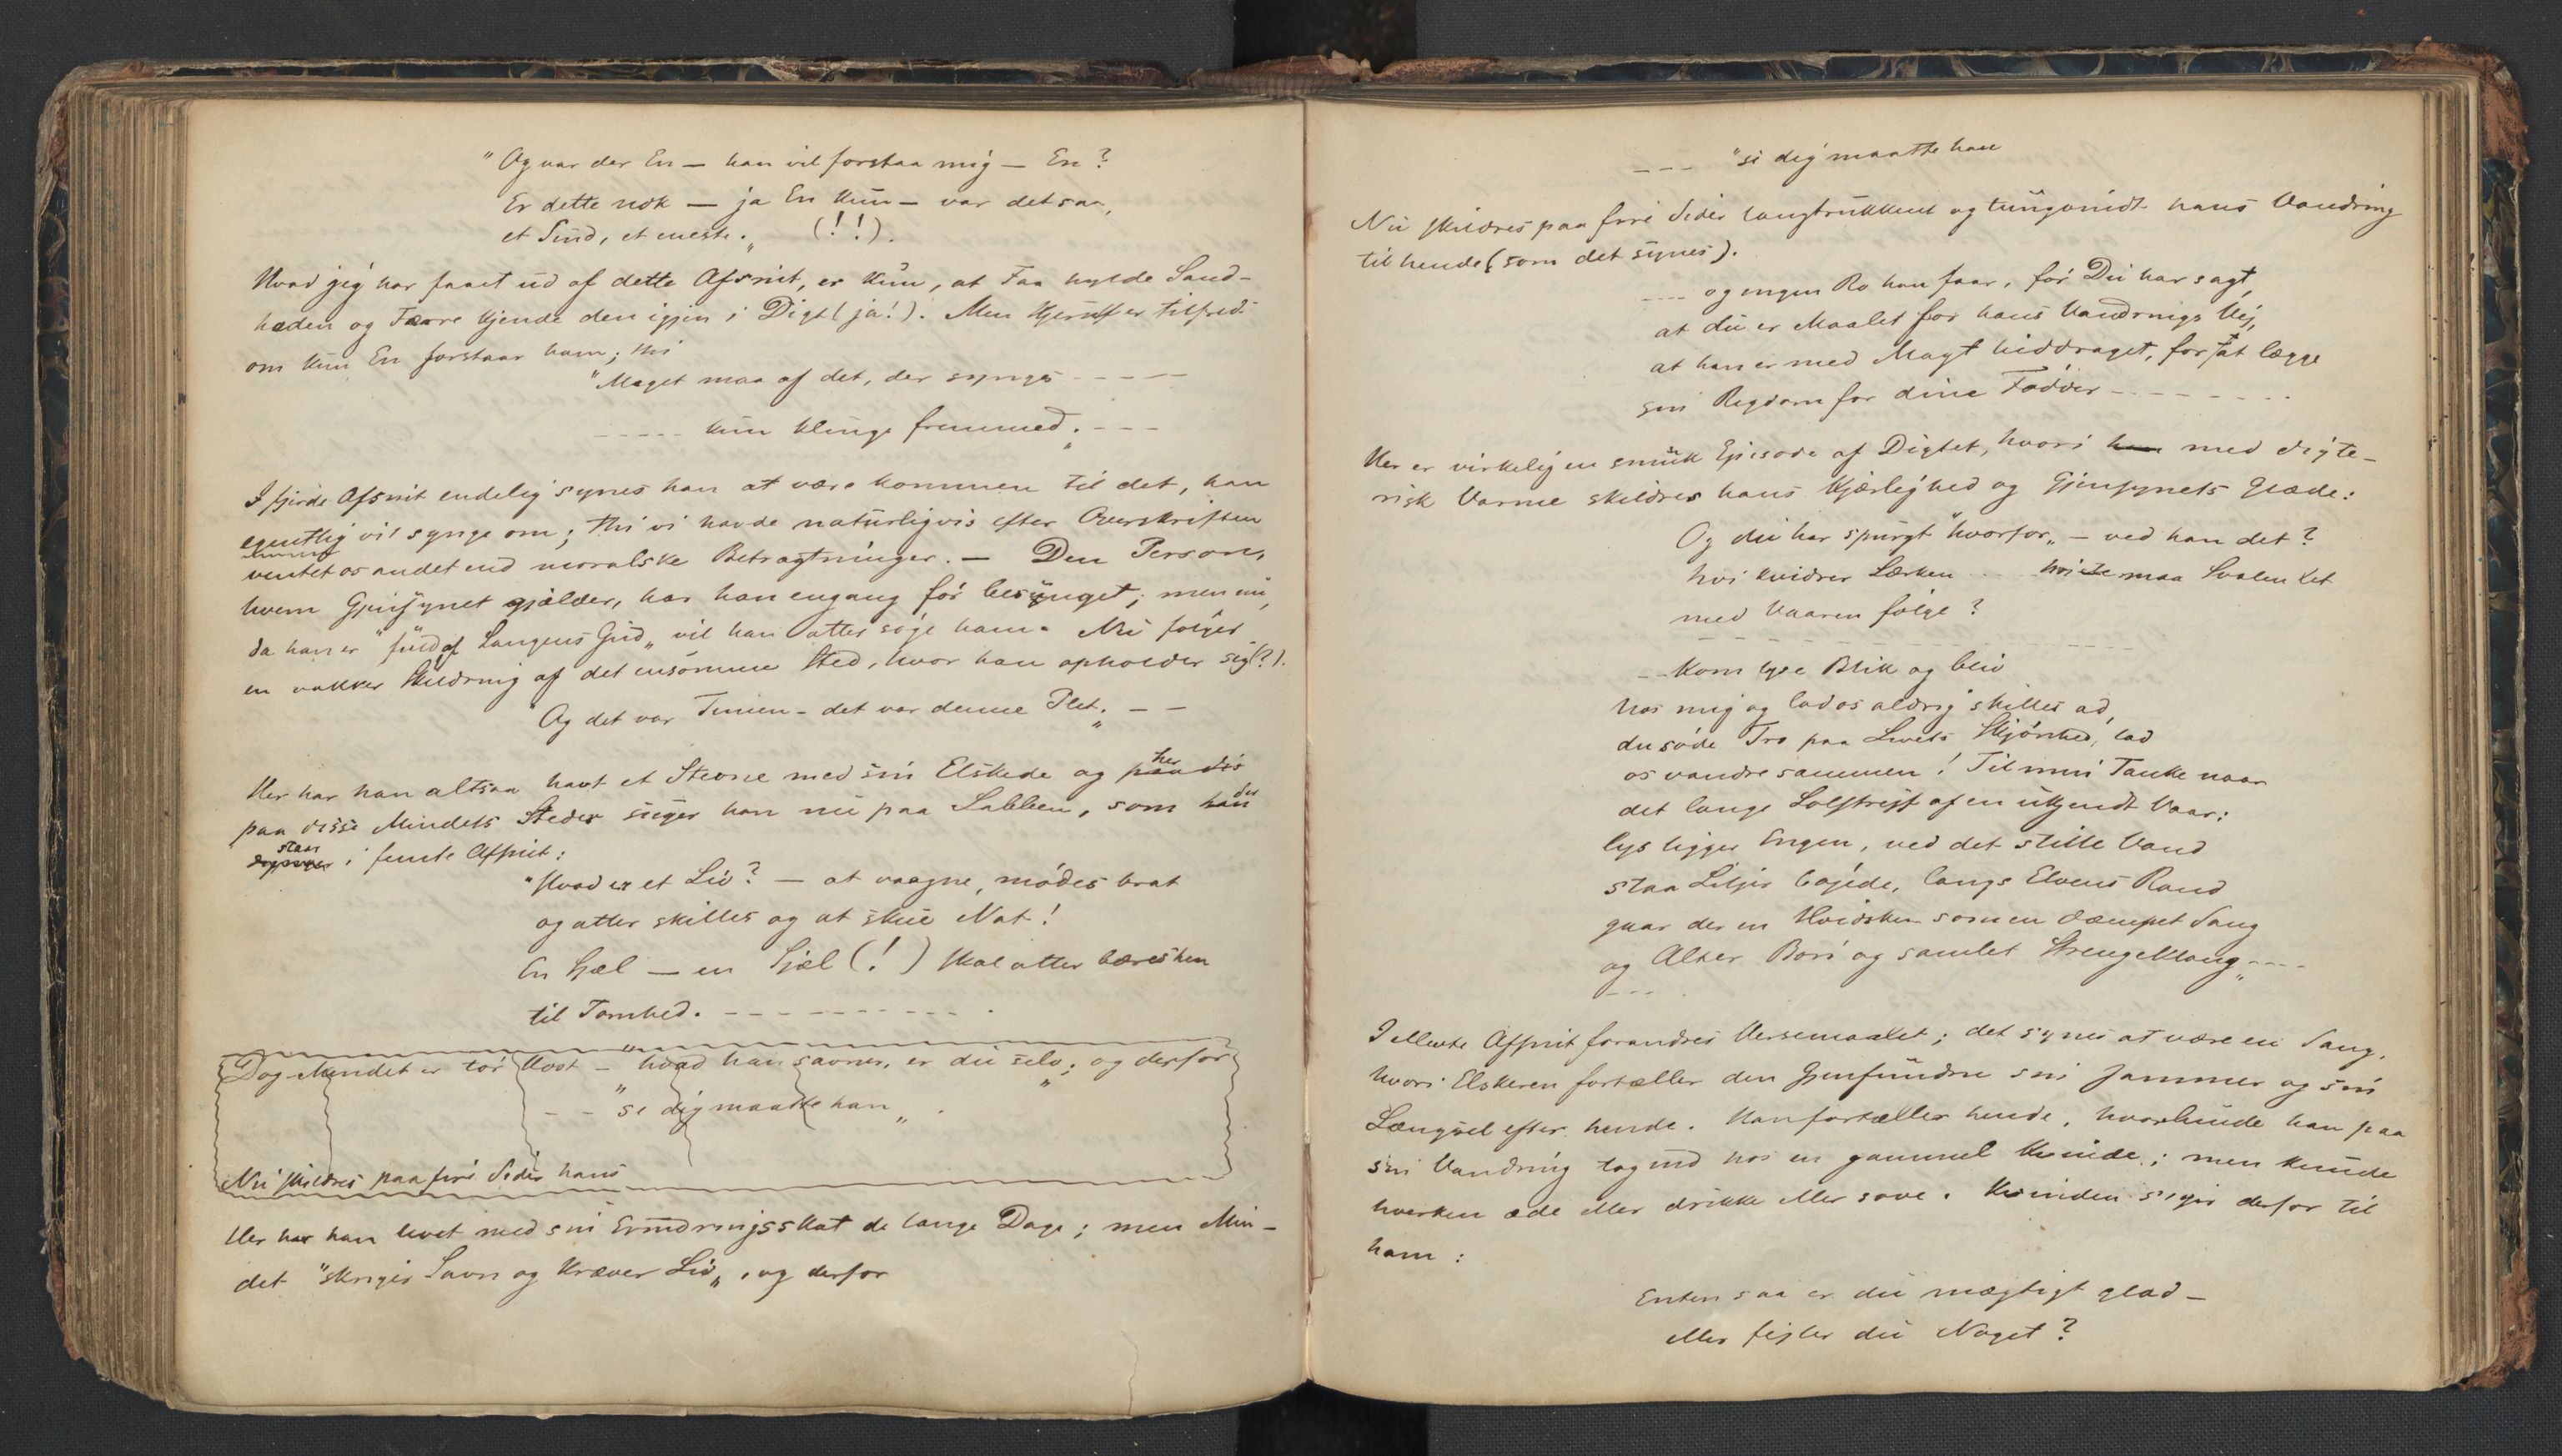 "Og var der En — han vil forstaa mig — En?
Er dette nok — ja En kun — var det saa,
et Sind, et eneste.„ (!!).
Hvad jeg har faaet ud af dette Afsnit, er kun, at Faa hylde Sand-
heden og Færre kjende den igjen i Digt (ja!). Men Kjerulf er tilfreds
om kun En forstaar ham; thi
"Meget maa af det, der synges -----
----- kun klinge fremmed„. ---
I fjerde Afsnit endelig synes han at være kommen til det, han
egentlig vil synge om; thi vi havde naturligvis efter Overskriften
ventet os andet end moralske Betragtninger. — Den Person,
hvem Gjensynet gjælder, har han engang før besunget; men nu,
da han er "fuld af Sangens Gud„ vil han atter søge ham. Nu følger
en vakker Skildring af det ensomme Sted, hvor han opholder sig (?).
"Og det var Timen - det var denne Plet„. — —
Her har han altsaa havt et Stevne med sin Elskede og her paa dis
paa disse Mindets Steder suger han nu paa Labben, som han der
staar i femte Afsnit:
"Hvad er et Liv? — at vaagne, mødes brat
og atter skilles og at skue Nat!
En Sjæl — en Sjæl (!) skal atter bæres hen
til Tomhed. ----------
Dog Mindet er tør Kost - "hvad han savner, er du selv„; og derfor
- - "se dig maatte han„.
Nu skildres paa fire Sider hans
Her har han levet med sin Erindringsskat de lange Dage; men Min-
det "skriger Savn og kræver Liv„, og derfor
--- "se dig maatte han
Nu skildres paa fire Sider langtrukkent og tungvindt hans Vandring
til hende (som det synes).
---- og ingen Ro han faar, før Du har sagt,
at du er Maalet for hans Vandrings Vej,
at han er med Magt hiddraget, for at lægge
sin Rigdom for dine Fødder --------
Her er virkelig en smuk Episode af Digtet, hvori han med digte-
risk Varme skildres hans Kjærlighed og Gjensynets Glæde:
Og du har spurgt "hvorfor„ — ved han det?
hvi kvidrer Lærken ... hvi maa Svalen let
med Vaaren følge?
-- Kom lyse Blik og bliv
hos mig og lad os aldrig skilles ad,
du søde Tro paa Livets Skjønhed, lad
os vandre sammen! Til min Tanke naar
det lange Solstrejf af en ukjendt Vaar:
lys ligger Engen, ved det stille Vand
staa Liljer bøjede, langs Elvens Rand
gaar der en Hvidsken som en dæmpet Sang
og Alter Bøn og samlet Strengeklang„----
---
I ellevte Afsnit forandres Versemaalet; det synes at være en Sang,
hvori Elskeren fortæller den Gjenfundne sin Jammer og sin
Længsel efter hende. Han fortæller hende, hvorlunde han paa
sin Vandring tog ind hos en gammel Kvinde; men kunde
hverken æde eller drikke eller sove. Kvinden siger derfor til
ham:
Enten saa er du mægtigt glad —
eller fejler du Noget?